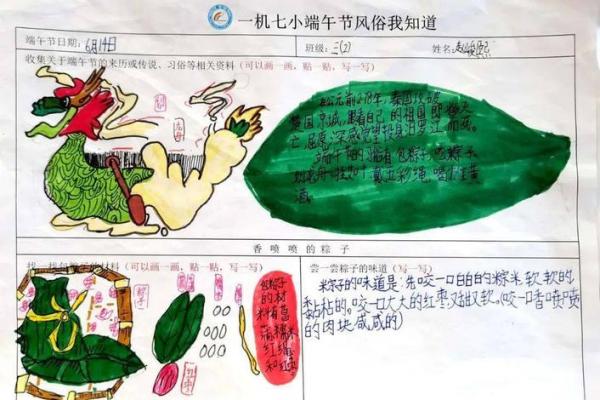 一机七小端午节风俗我知道
端午节日期：6月14日
班级：三(2)
姓名：
收集关于端午节的来历或传说、习俗等相关资料（可以画一画，贴一贴，写一写）
公元前278年，秦国攻破
楚国京城，看着自己的祖国即将灭
亡，屈原深感绝望投身汨罗江而死。
端午节的习俗有包粽子、吃粽子
划龙舟、挂艾叶、戴五彩绳、喝雄黄
酒。
香喷喷的粽子
找一找包粽子的材料（可以画一画，贴一贴，写一写）
尝一尝粽子的味道（写一写）
粽子
包粽子
的材
料有
红枣
粽子的味道是：先咬一口白白的粽米软软的
黏粘的。咬一口大大的红枣又甜又软。(咬一口香喷喷
的肉块咸咸的)